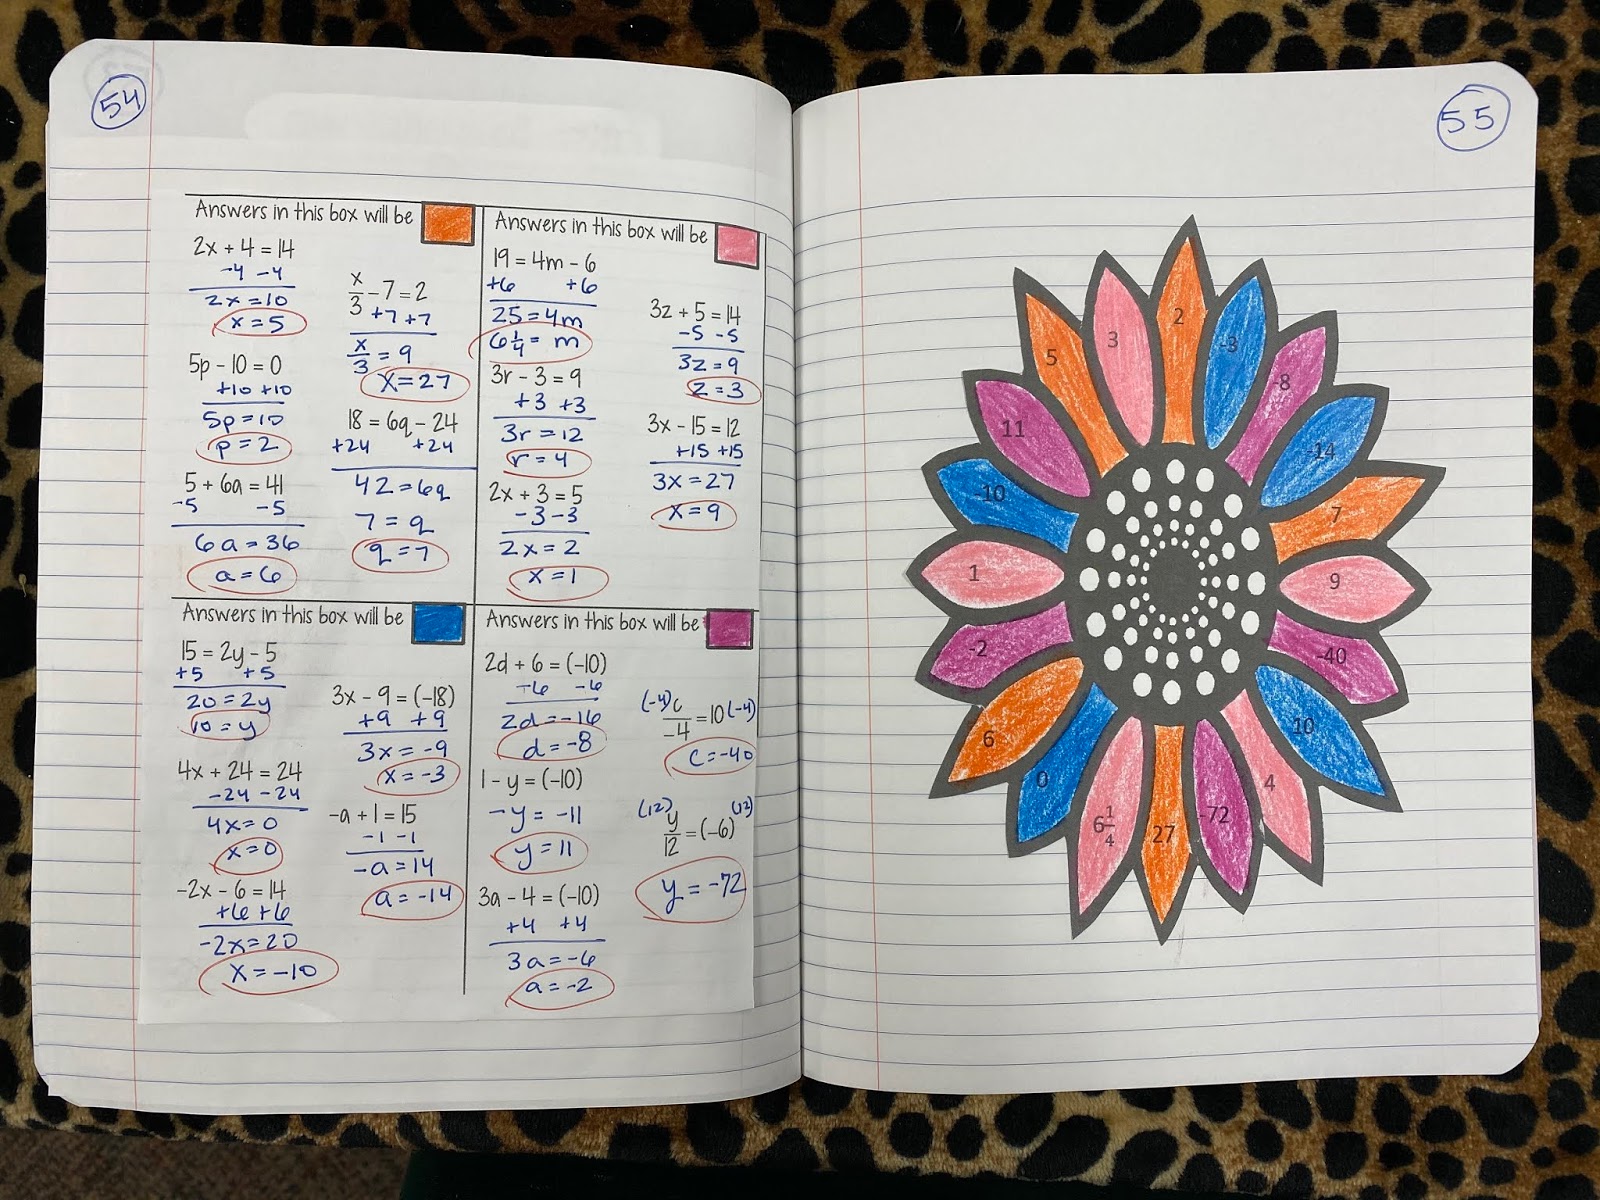 54
Answers in this box will be
2x + 4 = 14
-4 -4
2x = 10
x = 5
5p - 10 = 0
+10 +10
5p = 10
p = 2
5 + 6a = 41
-5 -5
6a = 36
a = 6
x/3 - 7 = 2
+7 +7
x/3 = 9
x = 27
18 = 6q - 24
+24 +24
42 = 6q
7 = q
q = 7
Answers in this box will be
19 = 4m - 6
+6 +6
25 = 4m
6 1/4 = m
3r - 3 = 9
+3 +3
3r = 12
r = 4
2x + 3 = 5
-3 -3
2x = 2
x = 1
3z + 5 = 14
-5 -5
3z = 9
z = 3
3x - 15 = 12
+15 +15
3x = 27
x = 9
Answers in this box will be
15 = 2y - 5
+5 +5
20 = 2y
10 = y
4x + 24 = 24
-24 -24
4x = 0
x = 0
-2x - 6 = 14
+6 +6
-2x = 20
x = -10
3x - 9 = (-18)
+9 +9
3x = -9
x = -3
-a + 1 = 15
-1 -1
-a = 14
a = -14
Answers in this box will be
2d + 6 = (-10)
-6 -6
2d = -16
d = -8
1 - y = (-10)
-y = -11
y = 11
3a - 4 = (-10)
+4 +4
3a = -6
a = -2
(-4) c/-4 = 10 (-4)
c = -40
(12) y/12 = (-6) (12)
y = -72
55
2
-3
-8
-14
7
9
-40
10
4
-72
27
6 1/4
0
6
-2
1
-10
11
5
3